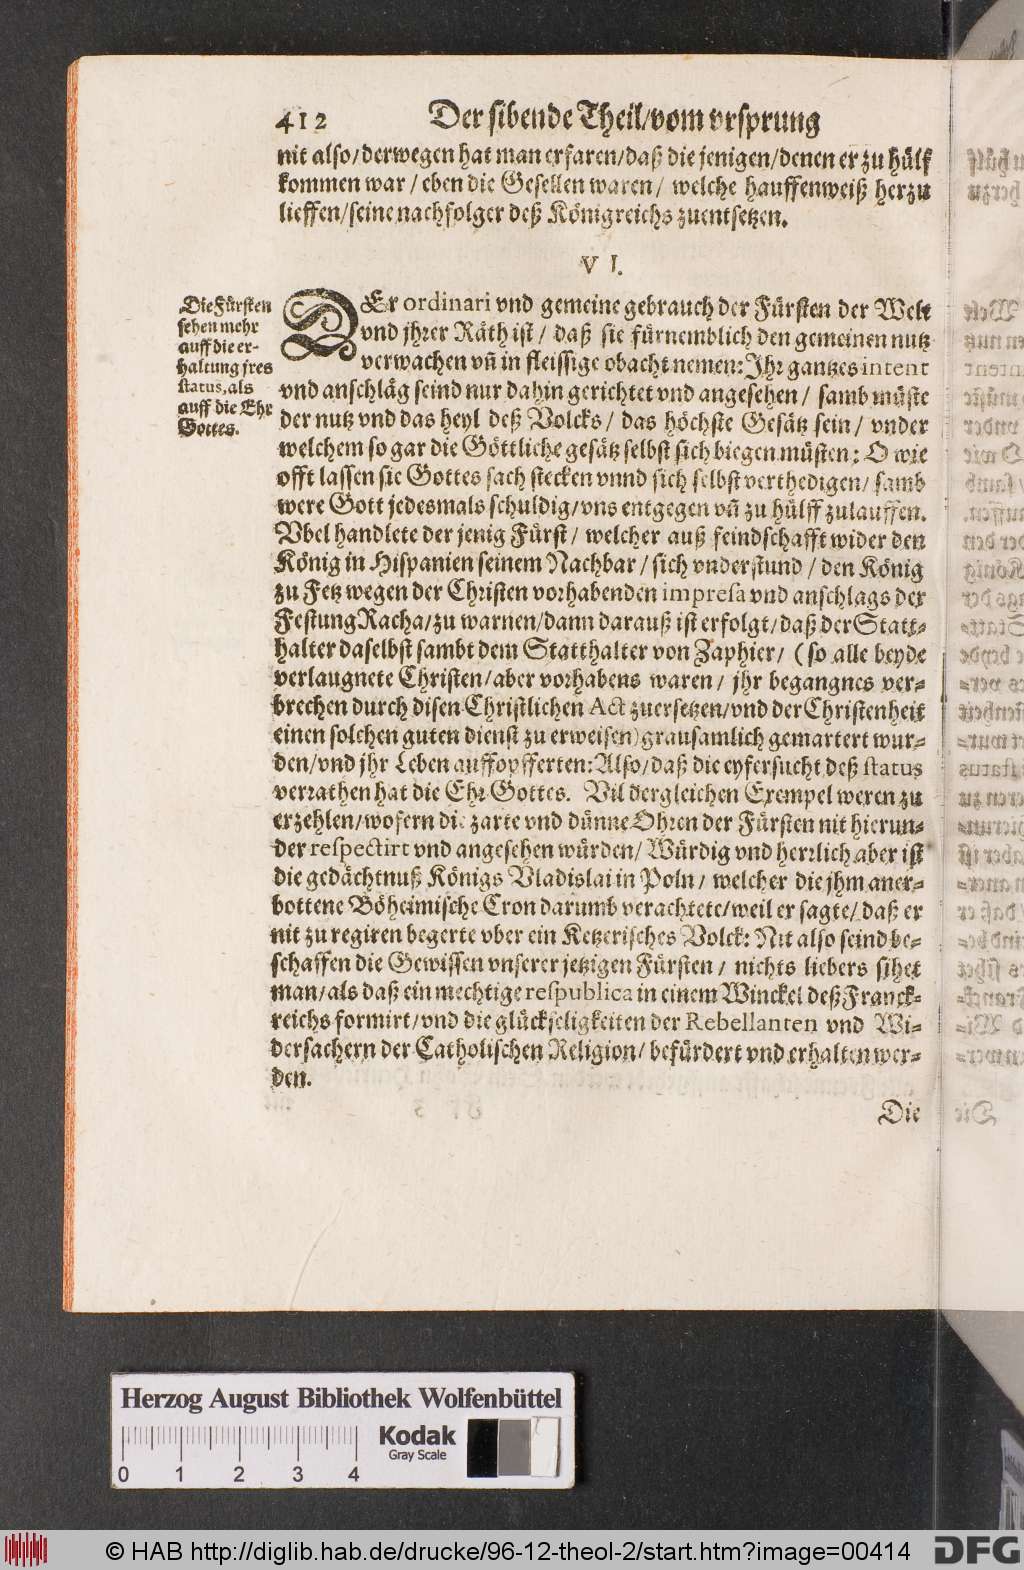 412 Der sibende Theil/vom vrsprung
nit also/derwegen hat man erfaren/daß die jenigen/denen er zu hülf
kommen war/eben die Gesellen waren/ welche hauffenweiß herzu
lieffen/seine nachfolger deß Königreichs zuentsetzen.
VI.
Die Fürsten
sehen mehr
auff die er-
haltung jres
status, als
auff die Ehr
Gottes.
DEr ordinari vnd gemeine gebrauch der Fürsten der Welt
vnd jhrer Räth ist/ daß sie fürnemblich den gemeinen nutz
verwachen vñ in fleissige obacht nemen: Ihr gantzes intent
vnd anschläg seind nur dahin gerichtet vnd angesehen/ samb müste
der nutz vnd das heyl deß Volcks/ das höchste Gesätz sein/ vnder
welchem so gar die Göttliche gesätz selbst sich biegen müsten: O wie
offt lassen sie Gottes sach stecken vnnd sich selbst verthedigen/ samb
were Gott jedesmals schuldig/vns entgegen vñ zu hülff zulauffen.
Vbel handlete der jenig Fürst/ welcher auß feindschafft wider den
König in Hispanien seinem Nachbar/sich vnderstund/den König
zu Fetz wegen der Christen vorhabenden impresa vnd anschlags der
Festung Racha/zu warnen/dann darauß ist erfolgt/daß der Statt-
halter daselbst sambt dem Statthalter von Zaphier/ (so alle beyde
verlaugnete Christen/aber vorhabens waren/ jhr begangnes ver-
brechen durch disen Christlichen Act zuersetzen/vnd der Christenheit
einen solchen guten dienst zu erweisen) grausamlich gemartert wur-
den/vnd jhr Leben auffopfferten: Also/daß die eyfersucht deß status
verrathen hat die Ehr Gottes. Vil dergleichen Exempel weren zu
erzehlen/wofern die zarte vnd dünne Ohren der Fürsten nit hierun-
der respectirt vnd angesehen würden/ Würdig vnd herrlich aber ist
die gedächtnuß Königs Vladislai in Poln/ welcher die jhm aner-
bottene Böheimische Cron darumb verachtete/weil er sagte/ daß er
nit zu regiren begerte vber ein Ketzerisches Volck: Nit also seind be-
schaffen die Gewissen vnserer jetzigen Fürsten/ nichts liebers sihet
man/als daß ein mechtige respublica in einem Winckel deß Franck-
reichs formirt/vnd die glückseligkeiten der Rebellanten vnd Wi-
dersachern der Catholischen Religion/befürdert vnd erhalten wer-
den.
Die
Herzog August Bibliothek Wolfenbüttel
Kodak
Gray Scale
0 1 2 3 4
© HAB http://diglib.hab.de/drucke/96-12-theol-2/start.htm?image=00414
DFG